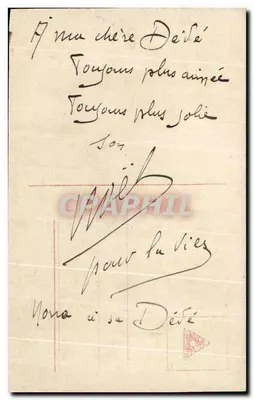 A ma chère Dédé
Toujours plus aimée
Toujours plus jolie
son
CPAPHIL
pour la vie
Nono à sa Dédé